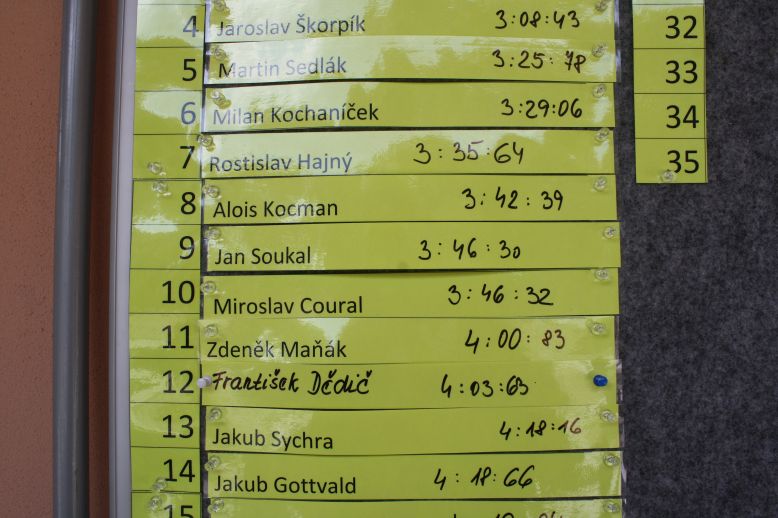 4 Jaroslav Škorpík 3:08:43 32
5 Martin Sedlák 3:25:78 33
6 Milan Kochaníček 3:29:06 34
7 Rostislav Hajný 3:35:64 35
8 Alois Kocman 3:42:39
9 Jan Soukal 3:46:30
10 Miroslav Coural 3:46:32
11 Zdeněk Maňák 4:00:83
12 František Dědič 4:03:63
13 Jakub Sychra 4:18:16
14 Jakub Gottvald 4:18:66
15